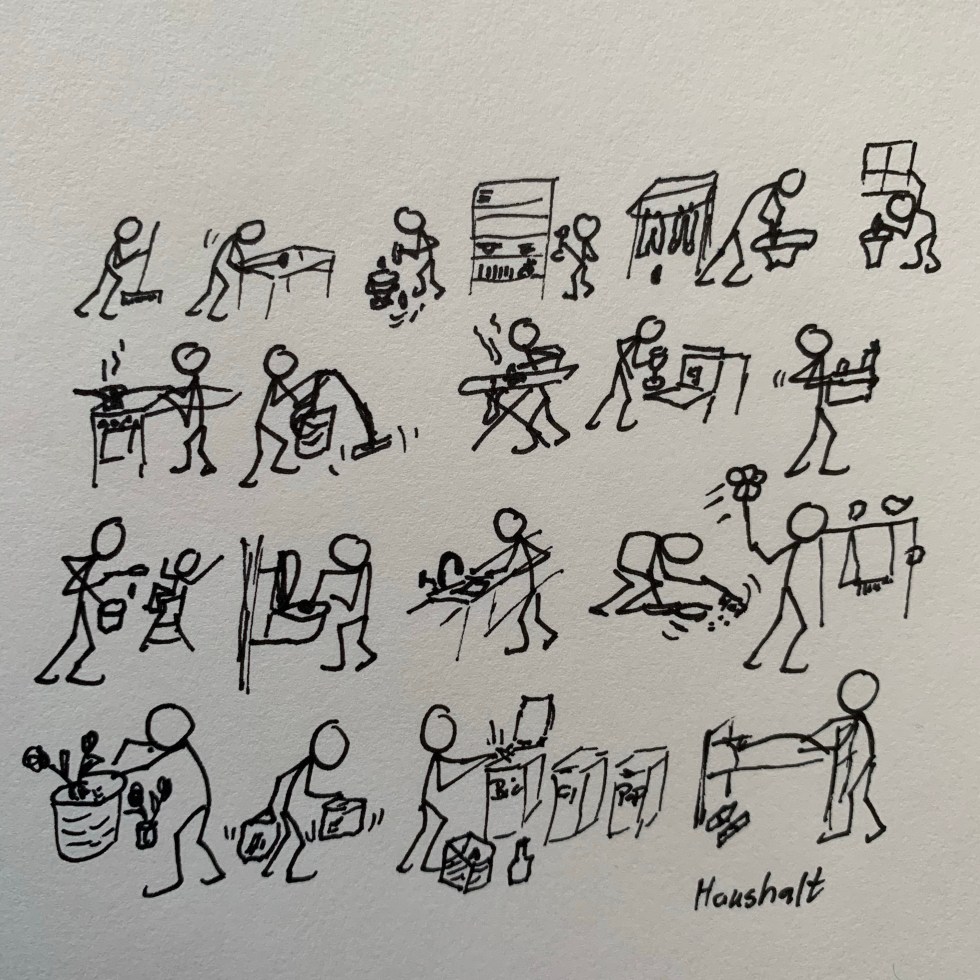 Bio
Gl
Pap
Haushalt